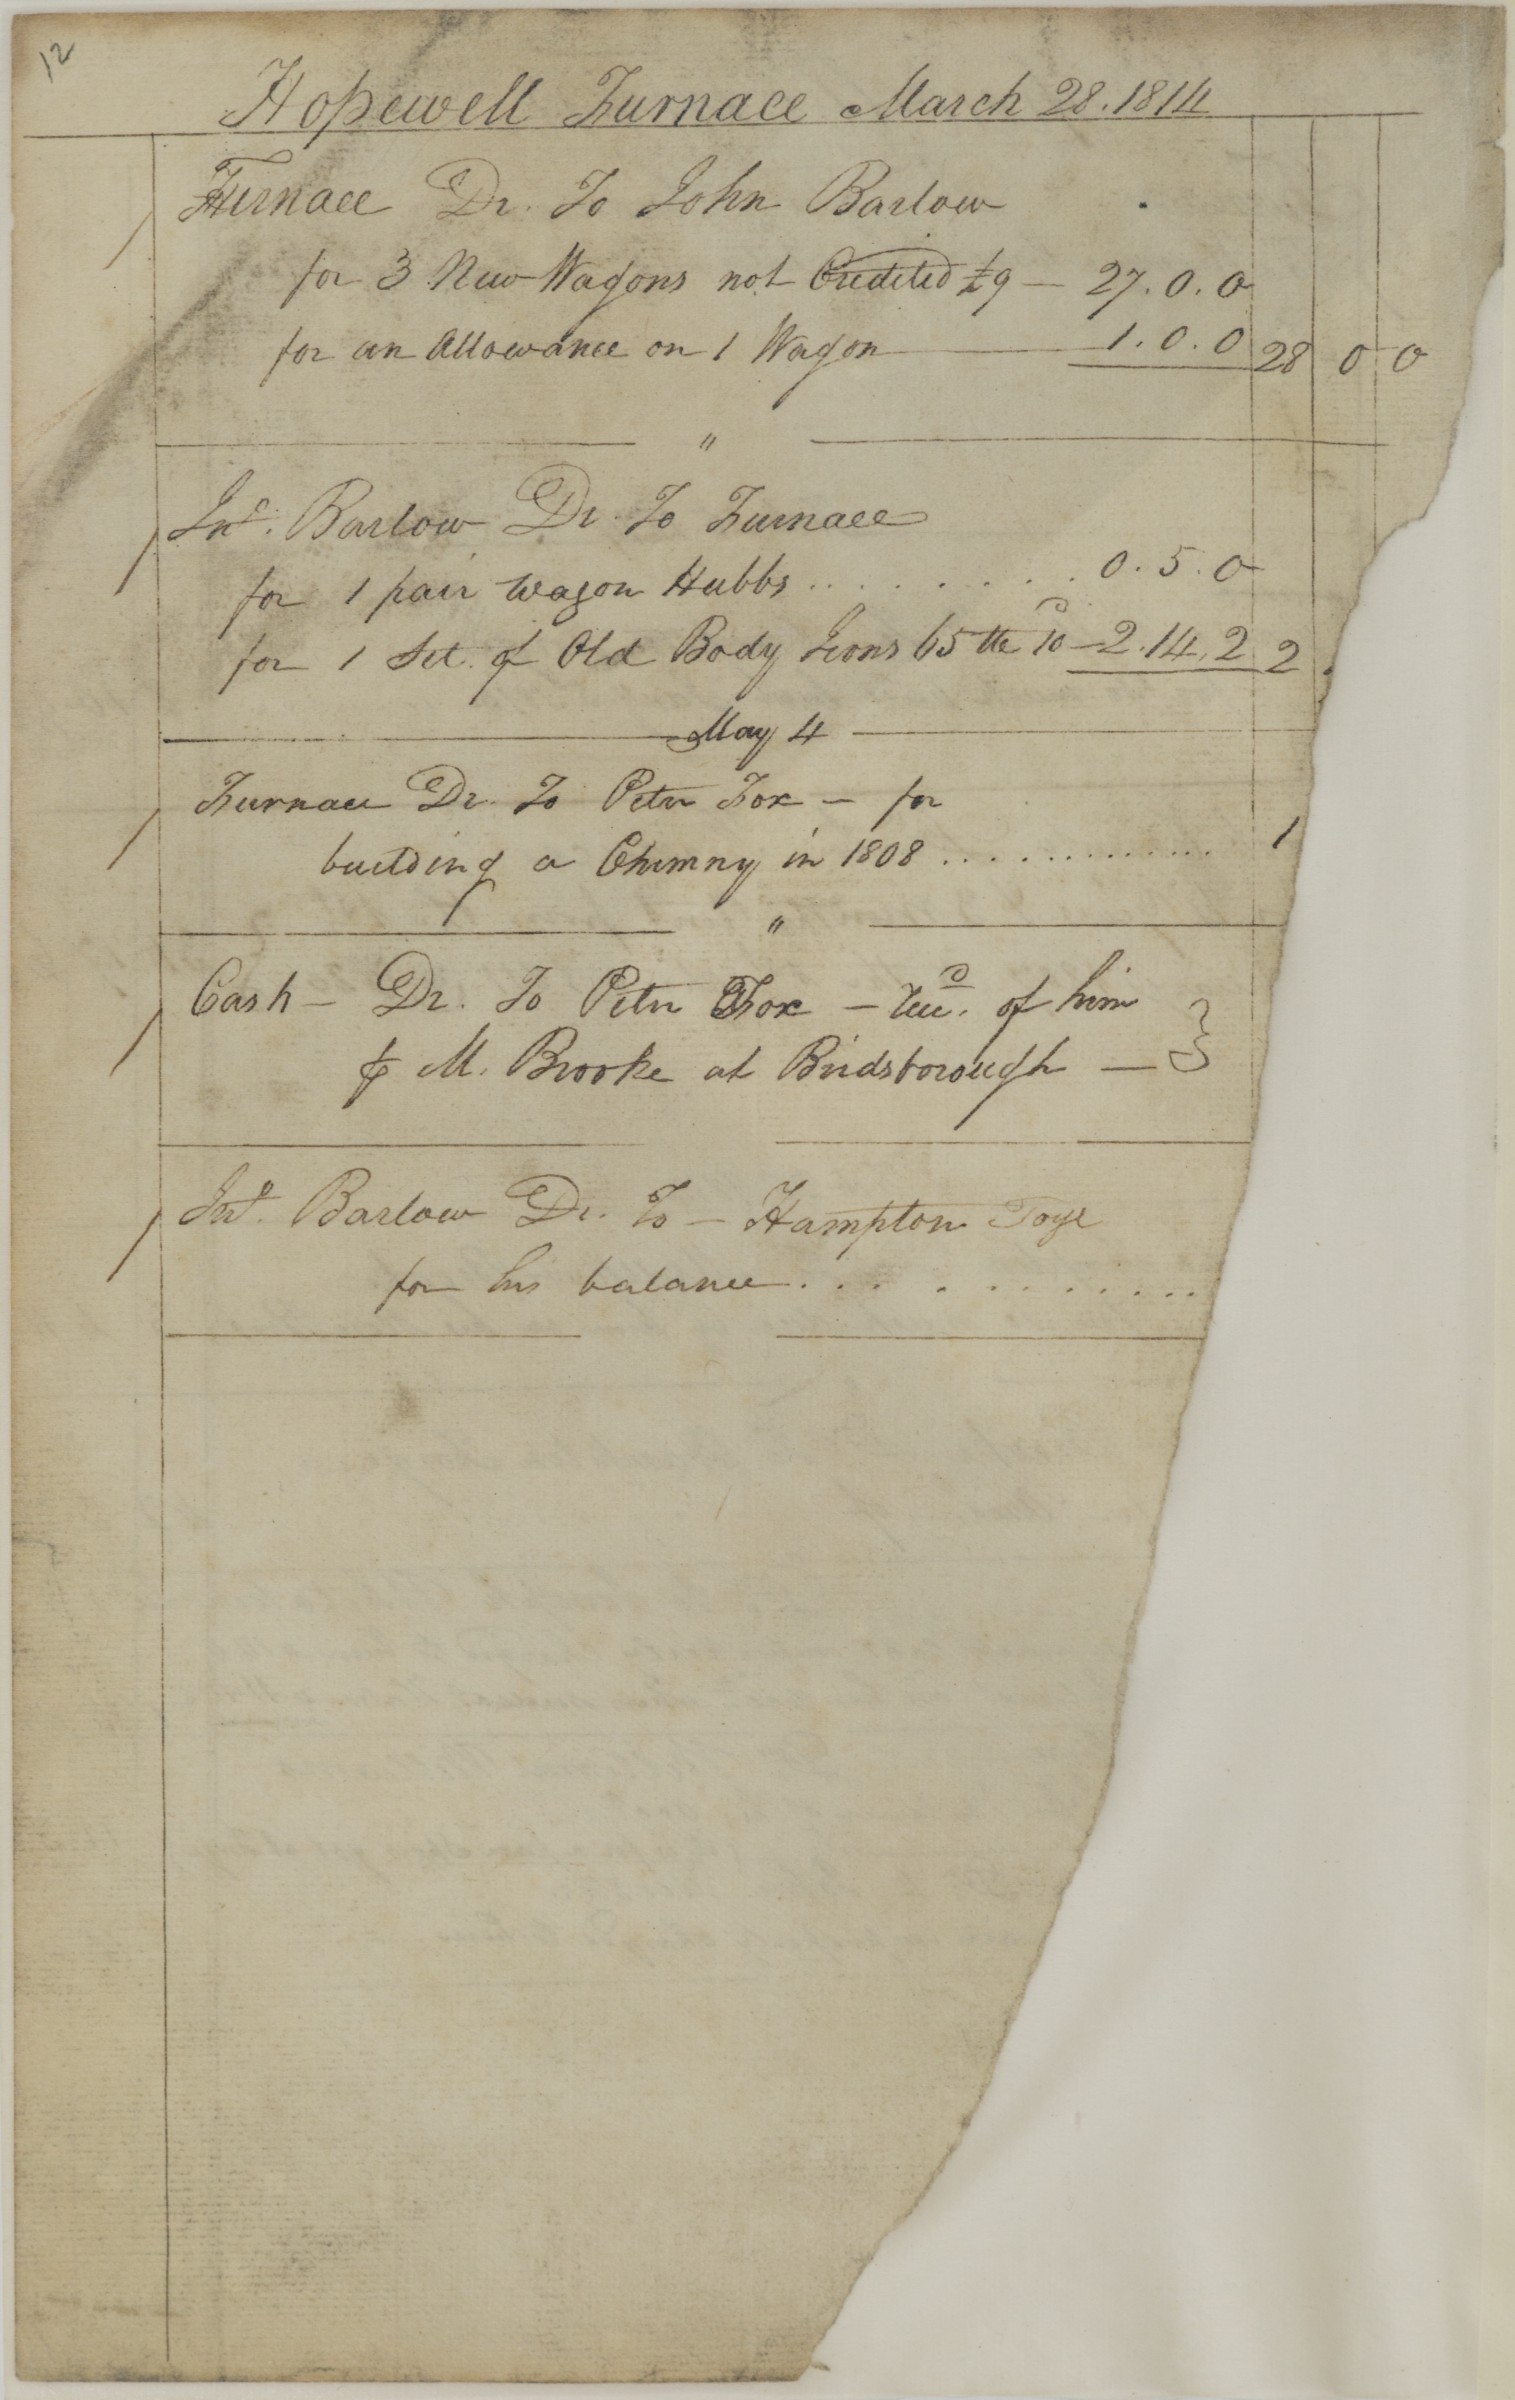 12
Hopewell Furnace March 28. 1814
Furnace Dr. To John Barlow
for 3 New Wagons not Credited £9 — 27. 0. 0
for an Allowance on 1 Wagon 1. 0. 0 28 0 0
"
Jnº. Barlow Dr. To Furnace
for 1 pair Wagon Hubbs . . . . . . . . 0. 5. 0
for 1 Set of Old Body Irons 65 lb 10d — 2. 14. 2 2
May 4
Furnace Dr. To Peter Fox — for
building a Chimny in 1808 . . . . . . . . . . . . . 1
"
Cash — Dr. To Peter Fox — Recd. of him
⅌ M. Brooke at Birdsborough —
Jnº. Barlow Dr. To — Hampton Toye
for his balance . . . . . . . . . . .